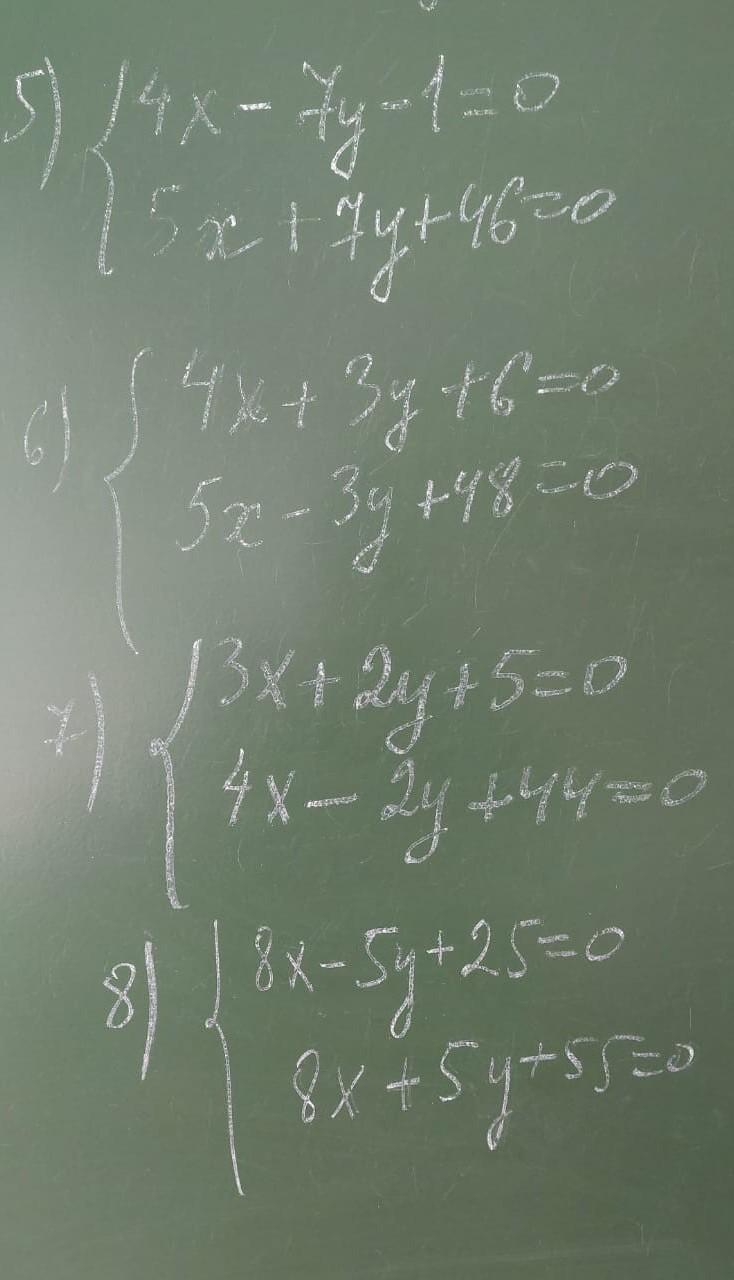 5) { 4x - 7y - 1 = 0
5x + 7y + 46 = 0
6) { 4x + 3y + 6 = 0
5x - 3y + 48 = 0
7) { 3x + 2y + 5 = 0
4x - 2y + 44 = 0
8) { 8x - 5y + 25 = 0
8x + 5y + 55 = 0